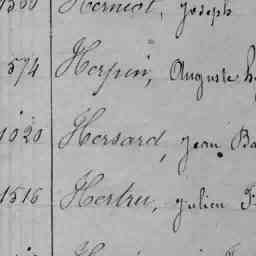 Herniot, Joseph
574 Herpin, Auguste
1020 Hersard, Jean Ba
1516 Hertru, Julien